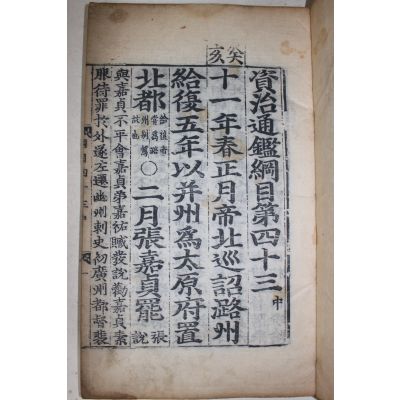 資治通鑑綱目第四十三 中
癸亥
十一年春正月帝北巡詔潞州
給復五年以并州爲太原府置
北都 給復者嘗爲潞州別駕故也 ○二月張嘉貞罷 張說
與嘉貞不平會嘉貞弟嘉祐贓發說勸嘉貞素
服待罪於外遂左遷幽州刺史初廣州都督裴